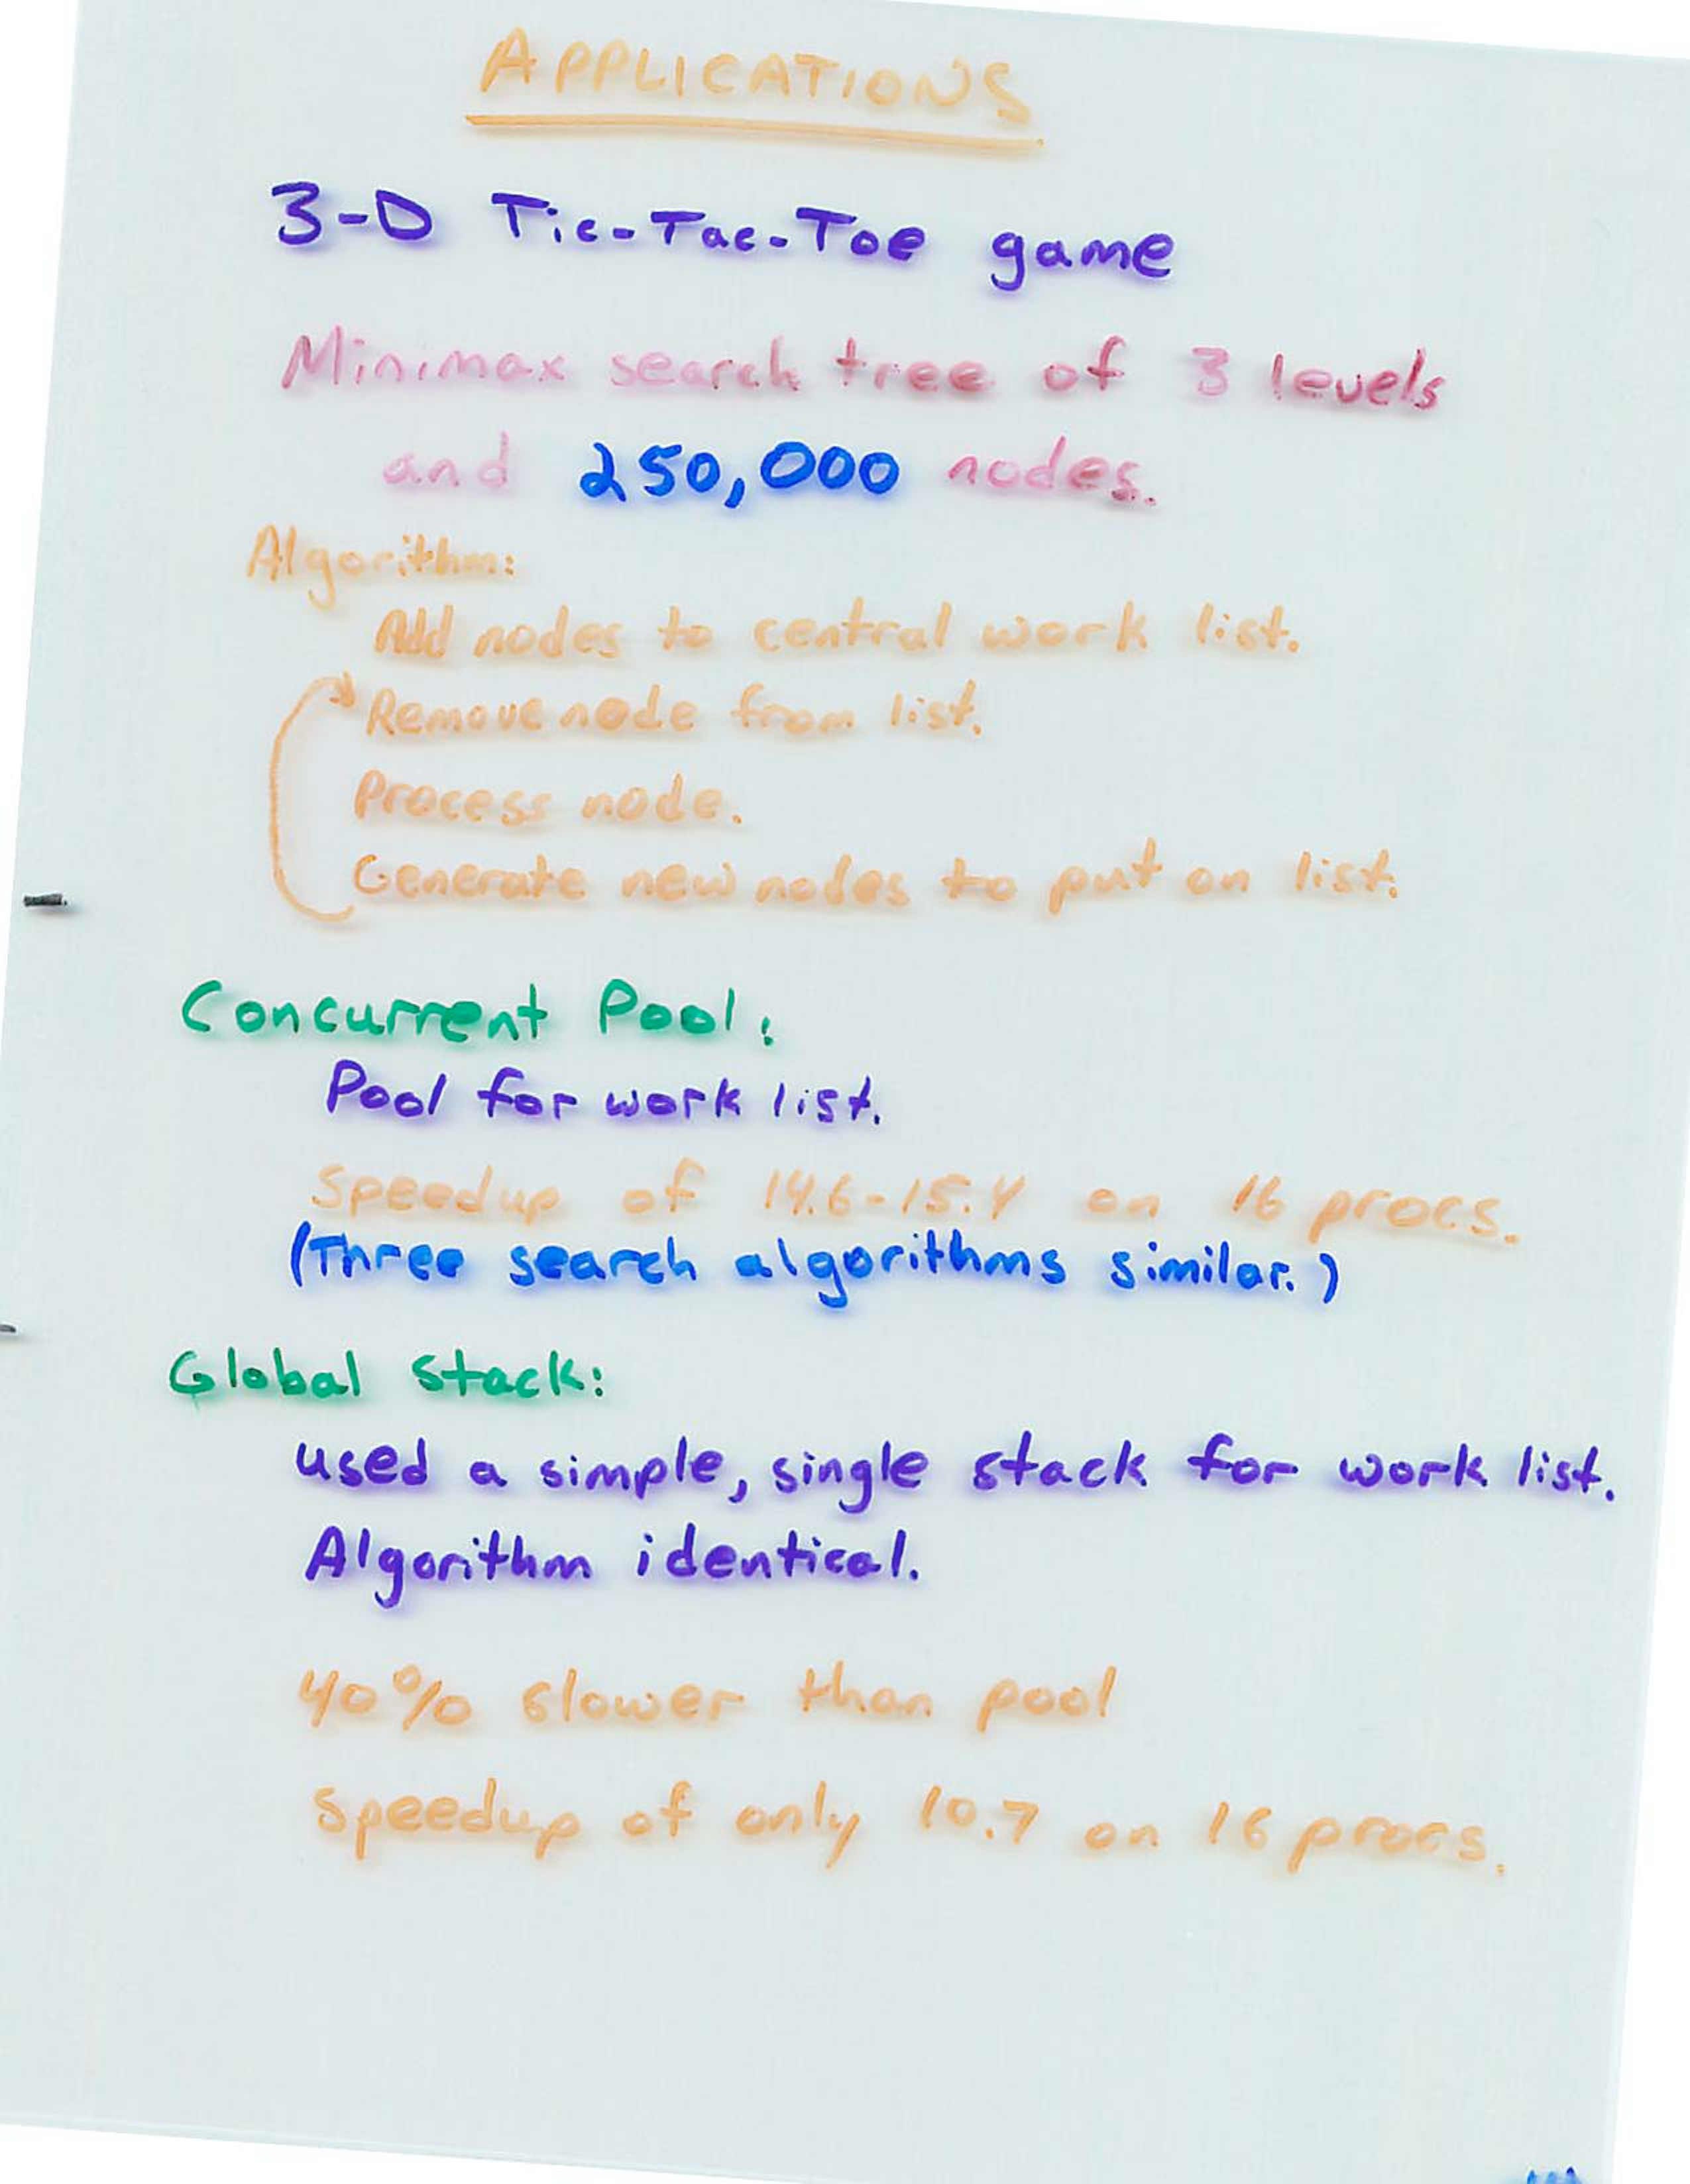 APPLICATIONS
3-D Tic-Tac-Toe game
Minimax search tree of 3 levels
and 250,000 nodes.
Algorithm:
Add nodes to central work list.
Remove node from list.
Process node.
Generate new nodes to put on list.
Concurrent Pool:
Pool for work list.
Speedup of 14.6-15.4 on 16 procs.
(Three search algorithms similar.)
Global stack:
used a simple, single stack for work list.
Algorithm identical.
40% slower than pool
Speedup of only 10.7 on 16 procs.